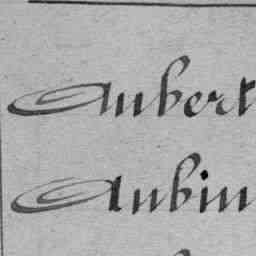 Aubert
Aubin